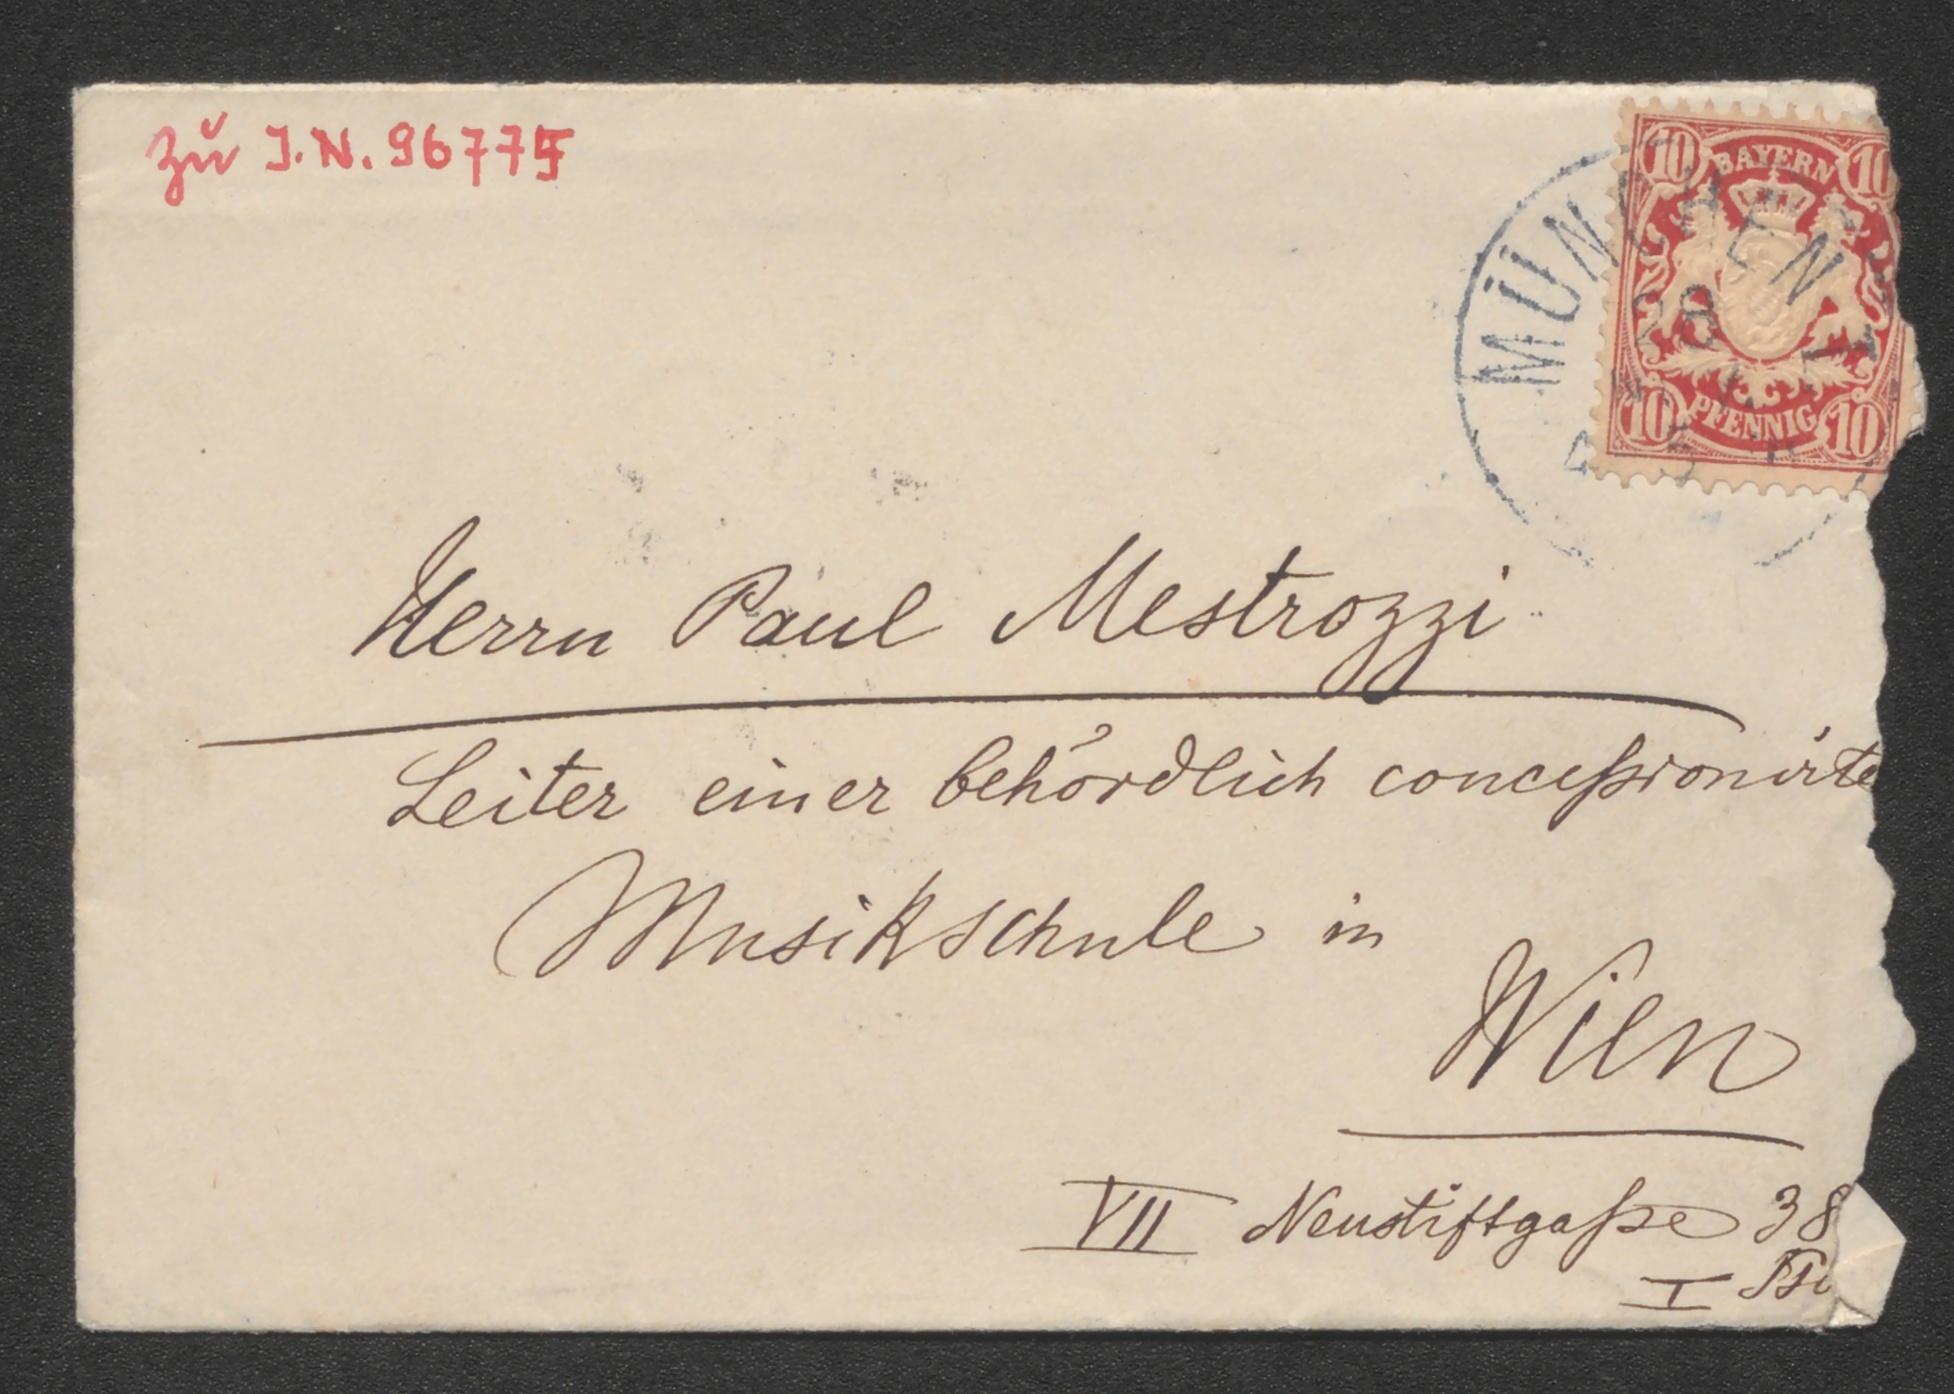 zu I.N. 96775
10 BAYERN 10
MÜNCHEN I
28
10 PFENNIG 10
Herrn Paul Mestrozzi
Leiter einer behördlich conceßionirte
Musikschule in
Wien
VII Neustiftgaße 38
I